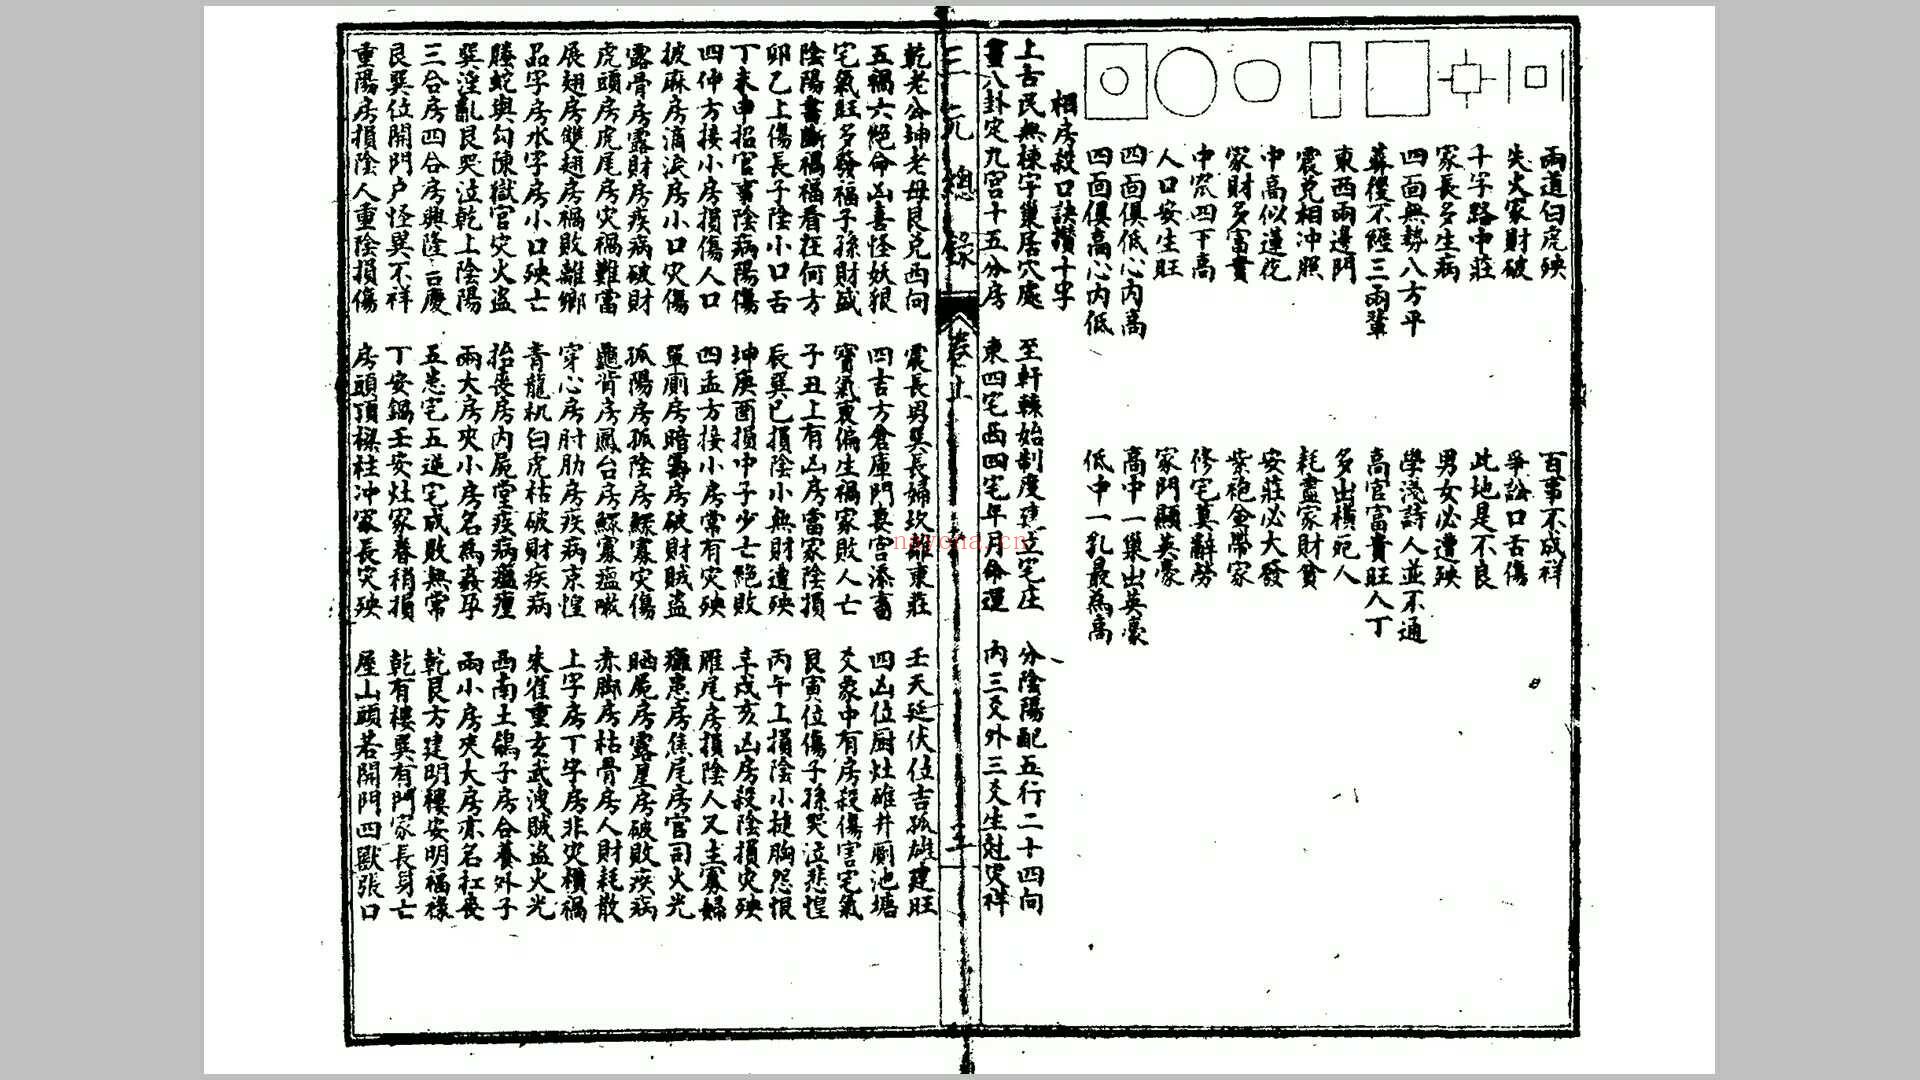 兩道白虎殃 百事不成祥
失火家財破 爭訟口舌傷
十字路中莊 此地是不良
家長多生病 男女必遭殃
四面無勢八方平 學淺詩人並不通
葬後不經三兩輩 高官富貴旺人丁
東西兩邊門 多出橫死人
震兌相冲照 耗盡家財貧
中高似蓮花 安莊必大發
家財多富貴 紫袍金帶家
中宮四下高 修宅莫辭勞
人口安生旺 家門顯英豪
四面俱低心內高 高中一巢出英豪
四面俱高心內低 低中一乳最為高
相房殺口訣攢十字
上古民無棟宇巢居穴處 至軒轅始制度建立宅庄 分陰陽配五行二十四向
畫八卦定九宮十五分房 東四宅西四宅年月命運 內三爻外三爻生尅災祥
三元總錄 卷上
乾老公坤老母艮兌西向 震長男巽長婦坎離東莊 壬天延伏位吉孤雄建旺
五禍六絕命凶喜怪妖狠 四吉方倉庫門妻宮添畜 四凶位厨灶碓井厠池塘
宅氣旺多發福子孫財盛 寶氣衰偏生禍家敗人亡 爻象中有房殺傷害宅氣
陰陽書斷禍福看在何方 子丑上有凶房當家陰損 艮寅位傷子孫哭泣悲惶
卯乙上傷長子陰小口舌 辰巽巳損陰小無財遭殃 丙午上損陰小搥胸怨恨
丁未申招官事陰病陽傷 坤庚酉損中子少亡絕敗 辛戌亥凶房殺陰損災殃
四仲方接小房損傷人口 四孟方接小房常有災殃 雁尾房損陰人又主寡婦
披麻房滴淚房小口災傷 單厠房暗算房破財賊盜 癱患房焦尾房官司火光
露骨房露財房疾病破財 孤陽房孤陰房鰥寡災傷 晒屍房露星房破敗疾病
虎頭房虎尾房災禍難當 龜背房鳳台房鰥寡瘟瘶 赤脚房枯骨房人財耗散
展翅房雙翅房禍敗離鄉 穿心房肘肋房疾病京惶 上字房丁字房非災橫禍
品字房水字房小口殃亡 青龍机白虎枯破財疾病 朱雀重玄武洩賊盜火光
螣蛇與勾陳獄官災火盜 抬喪房內屍堂疾病瘟㾮 西南土鴿子房合養外子
巽淫亂艮哭泣乾上陰陽 兩大房夾小房名為姦孕 兩小房夾大房亦名杠喪
三合房四合房興隆吉慶 五患宅五逆宅成敗無常 乾艮方建明樓安明福祿
艮巽位開門户怪異不祥 丁安鍋壬安灶家眷稍損 乾有樓巽有門家長身亡
重陽房損陰人重陰損傷 房頭頂樑柱冲家長災殃 屋山頭若開門四獸張口
nayona.cn